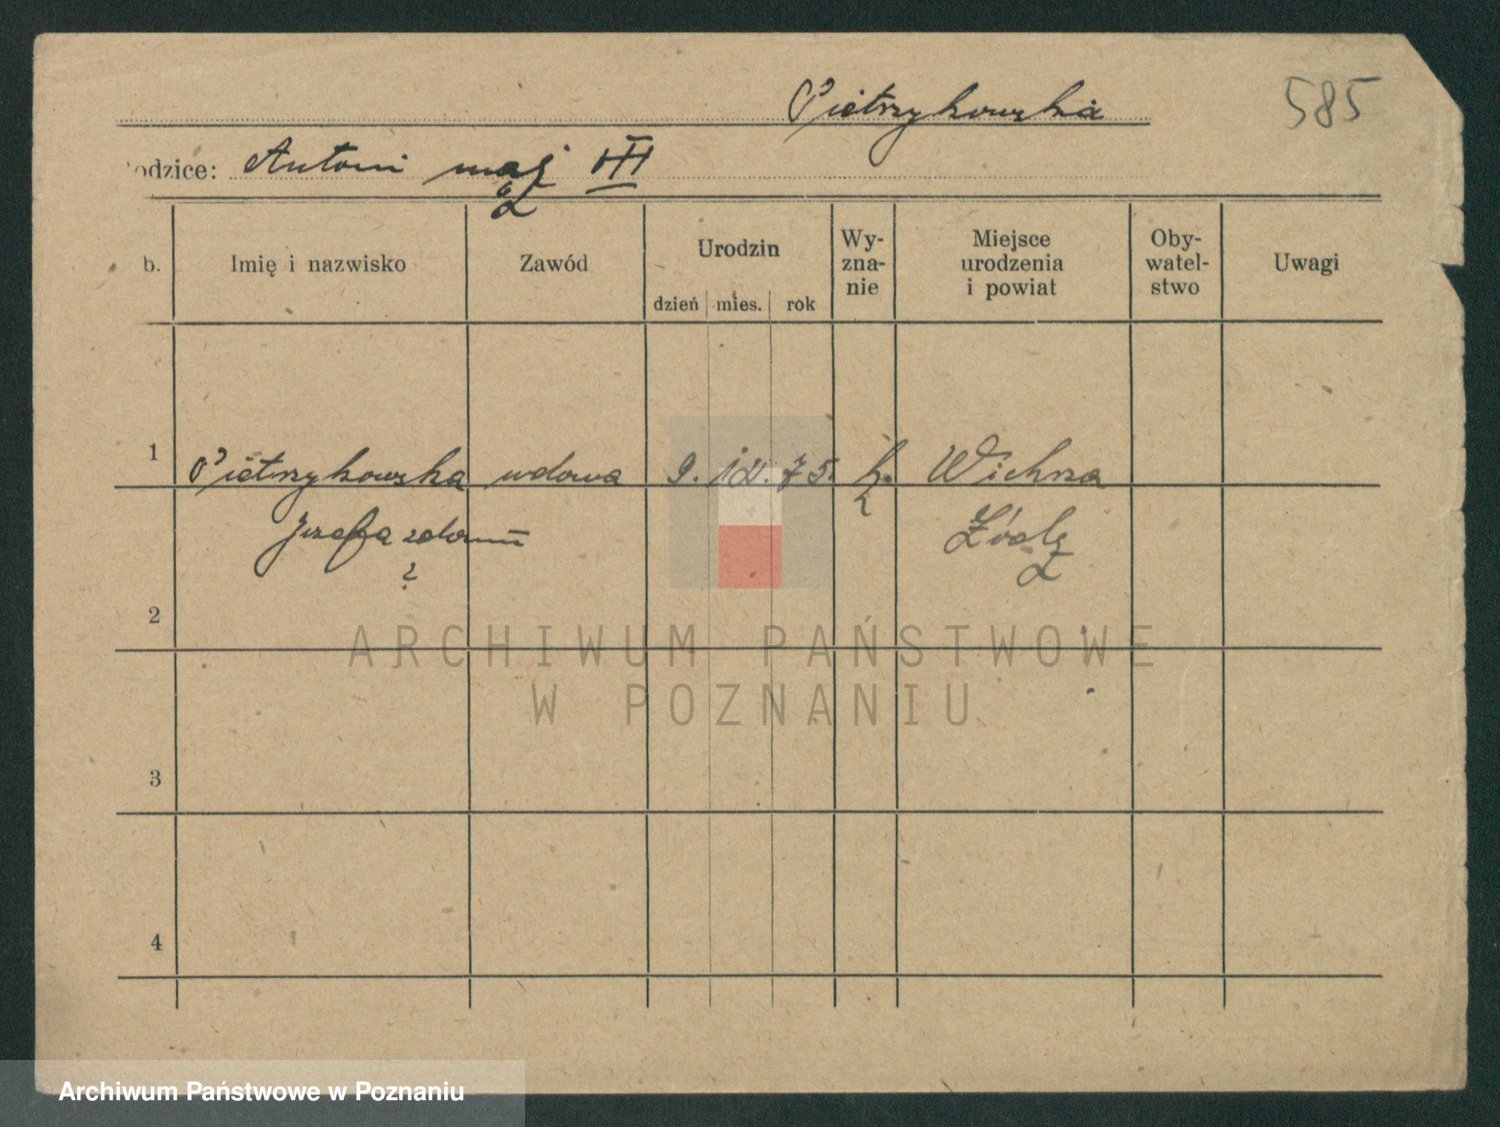 Pietrzykowska 585
odzice: Antoni mąż III
b. Imię i nazwisko Zawód Urodzin dzień mies. rok Wy-zna-nie Miejsce urodzenia i powiat Oby-watel-stwo Uwagi
1 Pietrzykowska wdowa 9. 12. 75. k. Wichrza
Józefa
?
2
3
4
ARCHIWUM PAŃSTWOWE
W POZNANIU
Archiwum Państwowe w Poznaniu